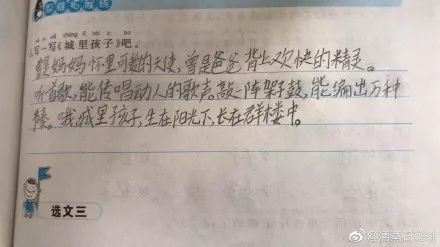 思维拓展练
写一写《城里孩子》吧。
曾是妈妈怀里可爱的天使,曾是爸爸背上欢快的精灵。
听首歌,能传唱动人的歌声。敲一阵架子鼓,能编出万种
节奏。哦,城里孩子,生在阳光下,长在群楼中。
选文三